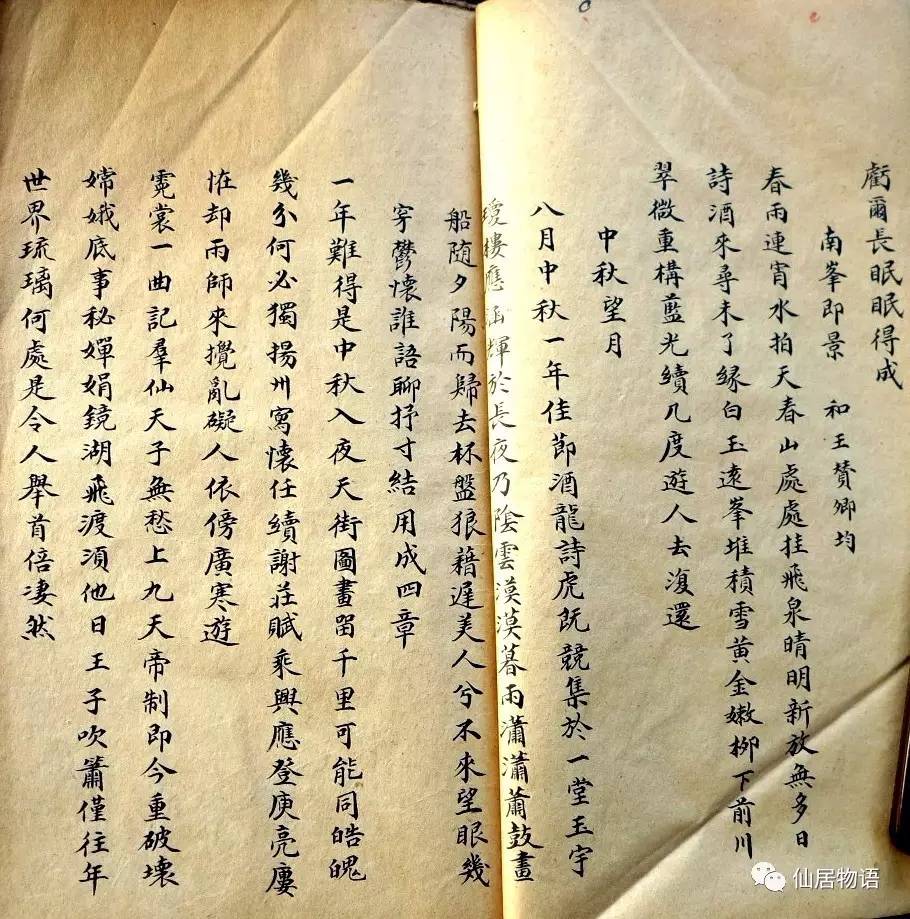 虧爾長眠眠得成
南峯即景　和王贊卿均
春雨連宵水拍天春山處處挂飛泉晴明新放無多日
詩酒來尋未了緣白玉遠峯堆積雪黃金嫩柳下前川
翠微重構藍光續几度遊人去復還
中秋望月
八月中秋一年佳節酒龍詩虎旣競集於一堂玉宇
瓊樓應涵輝於長夜乃陰雲漠漠暮雨瀟瀟蕭鼓畫
船随夕陽而歸去杯盤狼藉遲美人兮不來望眼幾
穿鬱懷誰語聊抒寸結用成四章
一年難得是中秋入夜天街圖畫留千里可能同皓魄
幾分何必獨揚州寫懷任續謝莊賦乘興應登庾亮廔
恠却雨師來攪亂礙人依傍廣寒遊
霓裳一曲記羣仙天子無愁上九天帝制即今重破壞
嫦娥底事秘嬋娟鏡湖飛渡須他日王子吹簫僅往年
世界琉璃何處是令人舉首倍凄然
仙居物语